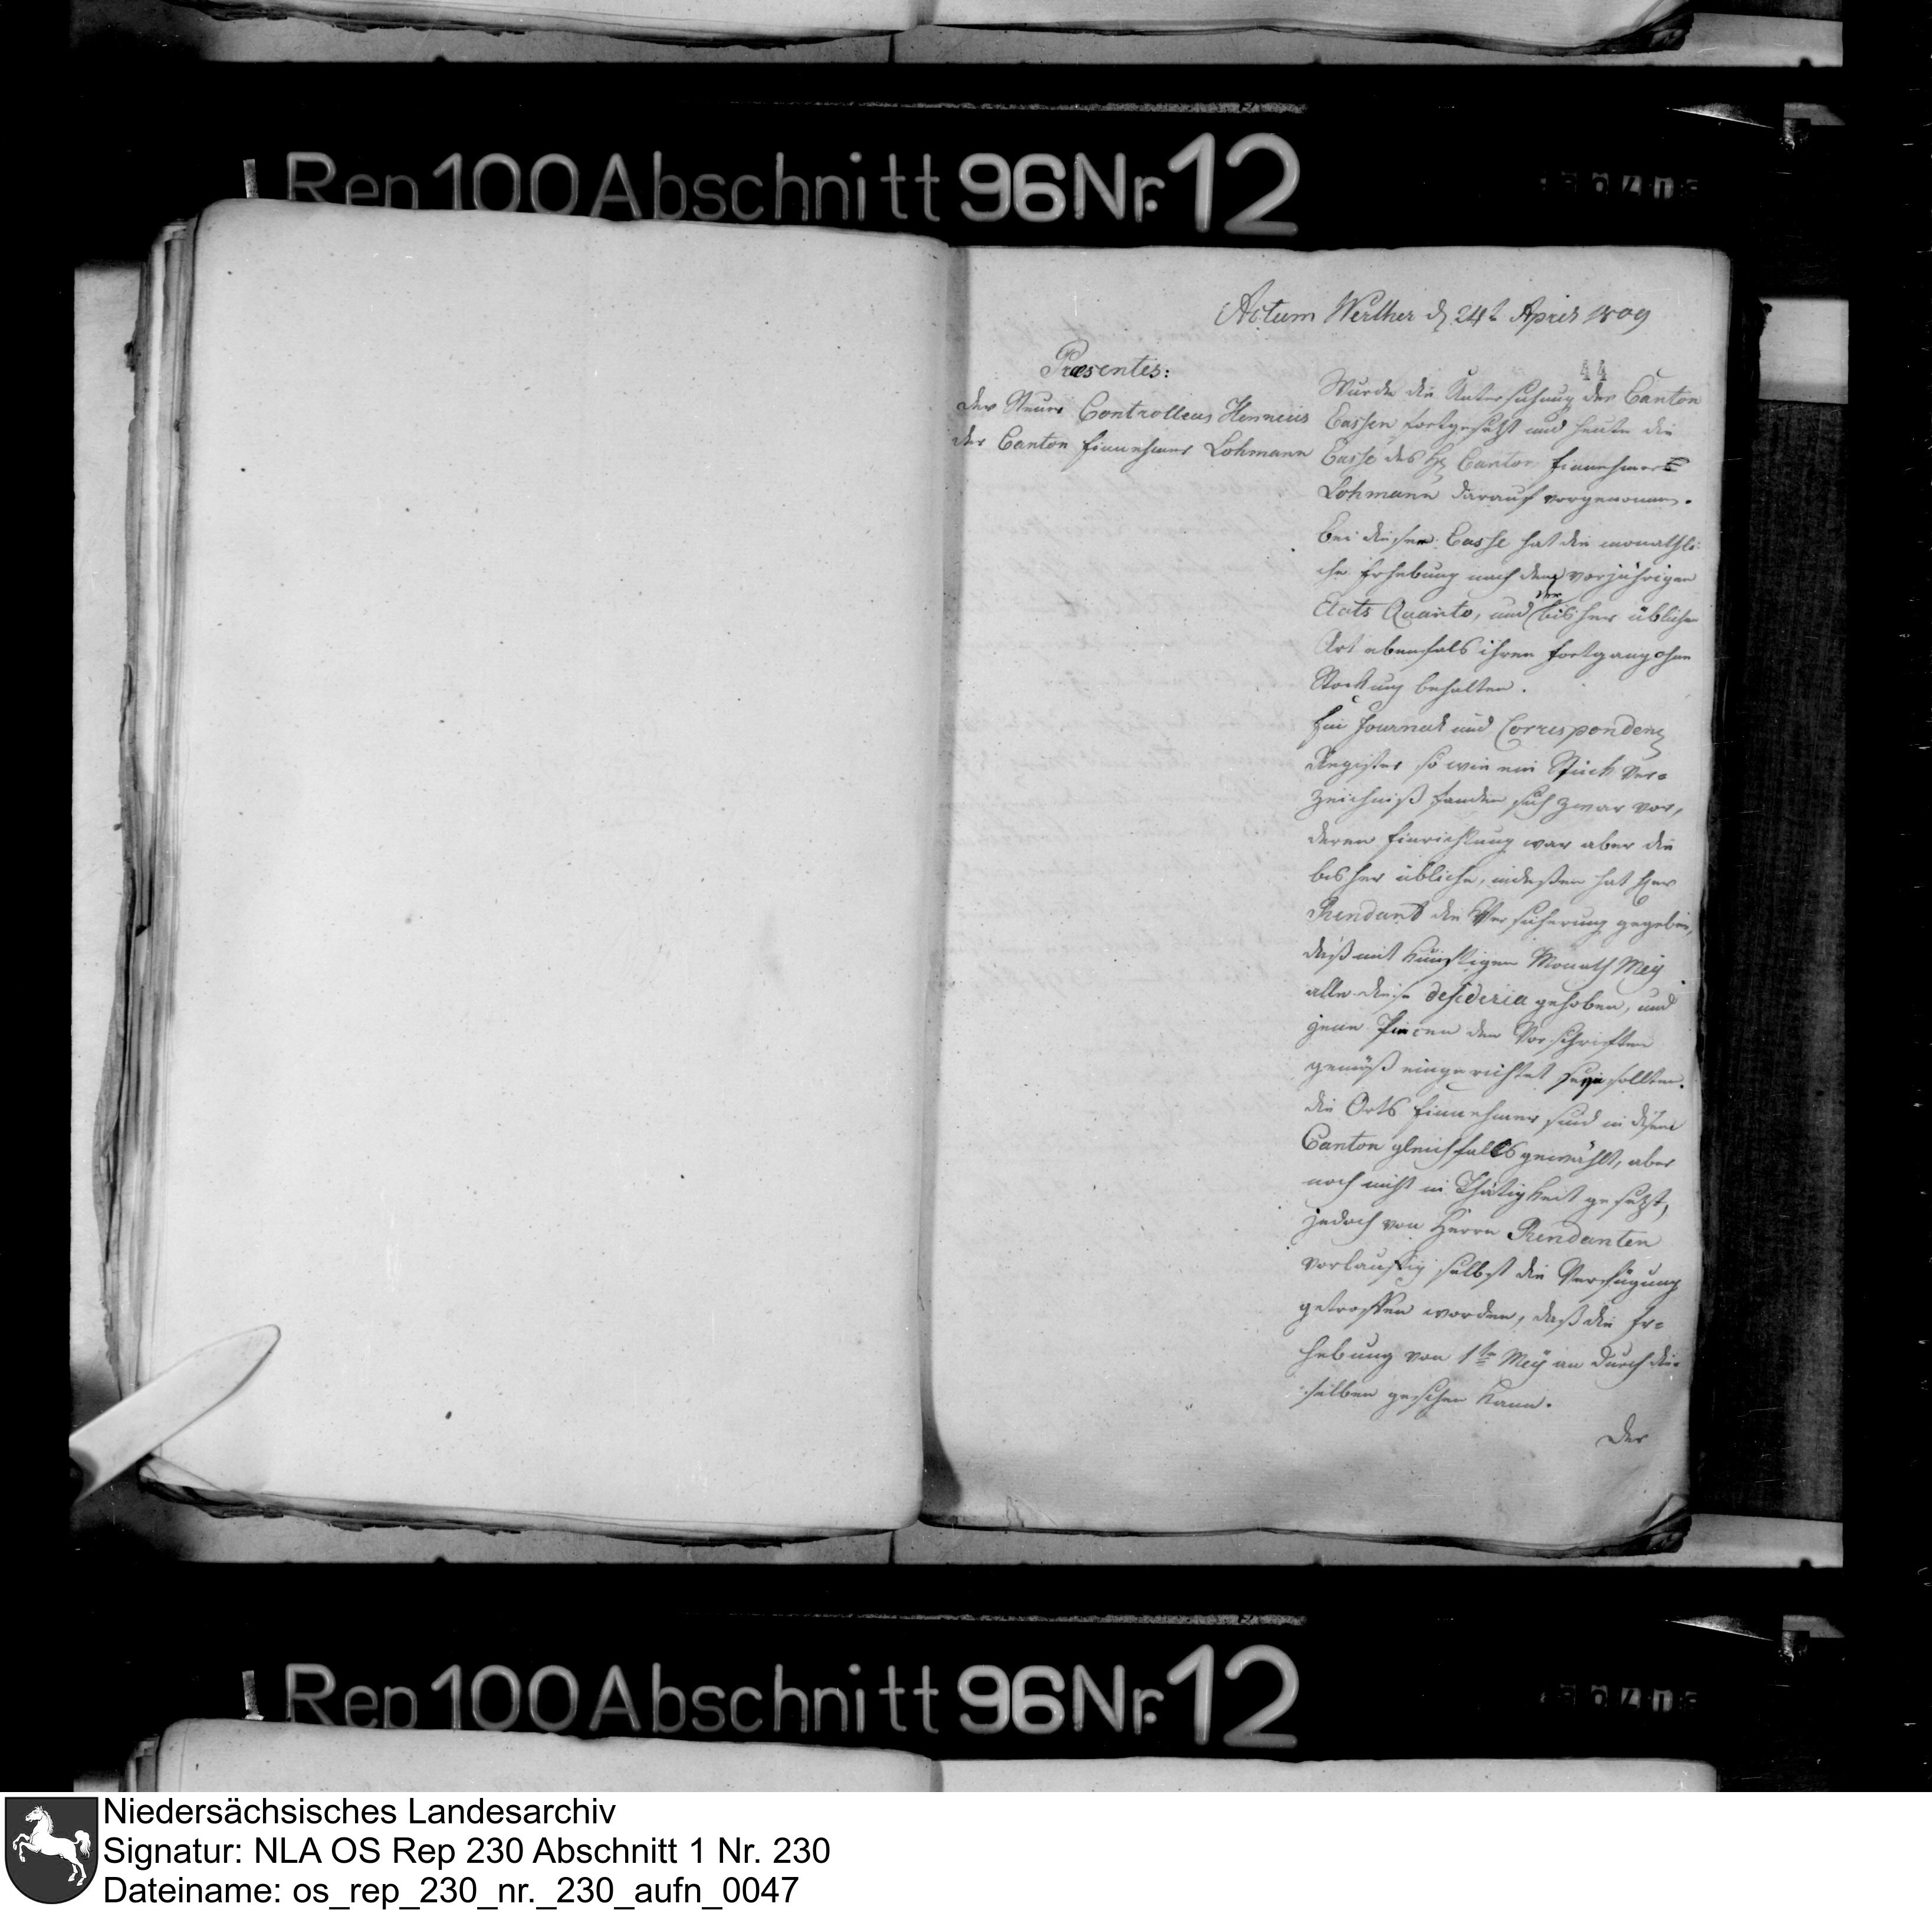 Rep 100 Abschnitt 96 Nr. 12
Actum Werther d 24t April 1809
44
Præsentes:
der Steuer Controlleur Hennecis
der Canton Einnehmer Lohmann
Wurde die Untersuchung der Canton
Cassen fortgesetzt und heute die
Casse des H Canton Einnehmers
Lohmann darauf vorgenommen.
Bei dieser Casse hat die monathli-
che Erhebung nach dem vorjährigen
Etats Quanto, und der bisher üblichen
Art ebenfals ihren Fortgang ohne
Stockung behalten.
Ein Journal und Correspondenz
Register so wie ein Stück Ver=
zeichniß fanden sich zwar vor,
deren Einrichtung war aber die
bisher übliche, indeßen hat Herr
Rendant die Versicherung gegeben,
daß mit künftigen Monath Mey
alle diese desideria gehoben, und
jene Piecen den Vorschriften
gemäß eingerichtet seyn sollten.
die Orts Einnehmer sind in diesem
Canton gleichfalls gewählt, aber
noch nicht in Thätigkeit gesetzt,
jedoch von Herrn Rendanten
vorlaufig selbst die Verfügung
getroffen worden, daß die Er=
hebung von 1ten Mey an durch die-
selben geschehen kann.
Der
Rep 100 Abschnitt 96 Nr. 12
Niedersächsisches Landesarchiv
Signatur: NLA OS Rep 230 Abschnitt 1 Nr. 230
Dateiname: os_rep_230_nr._230_aufn_0047